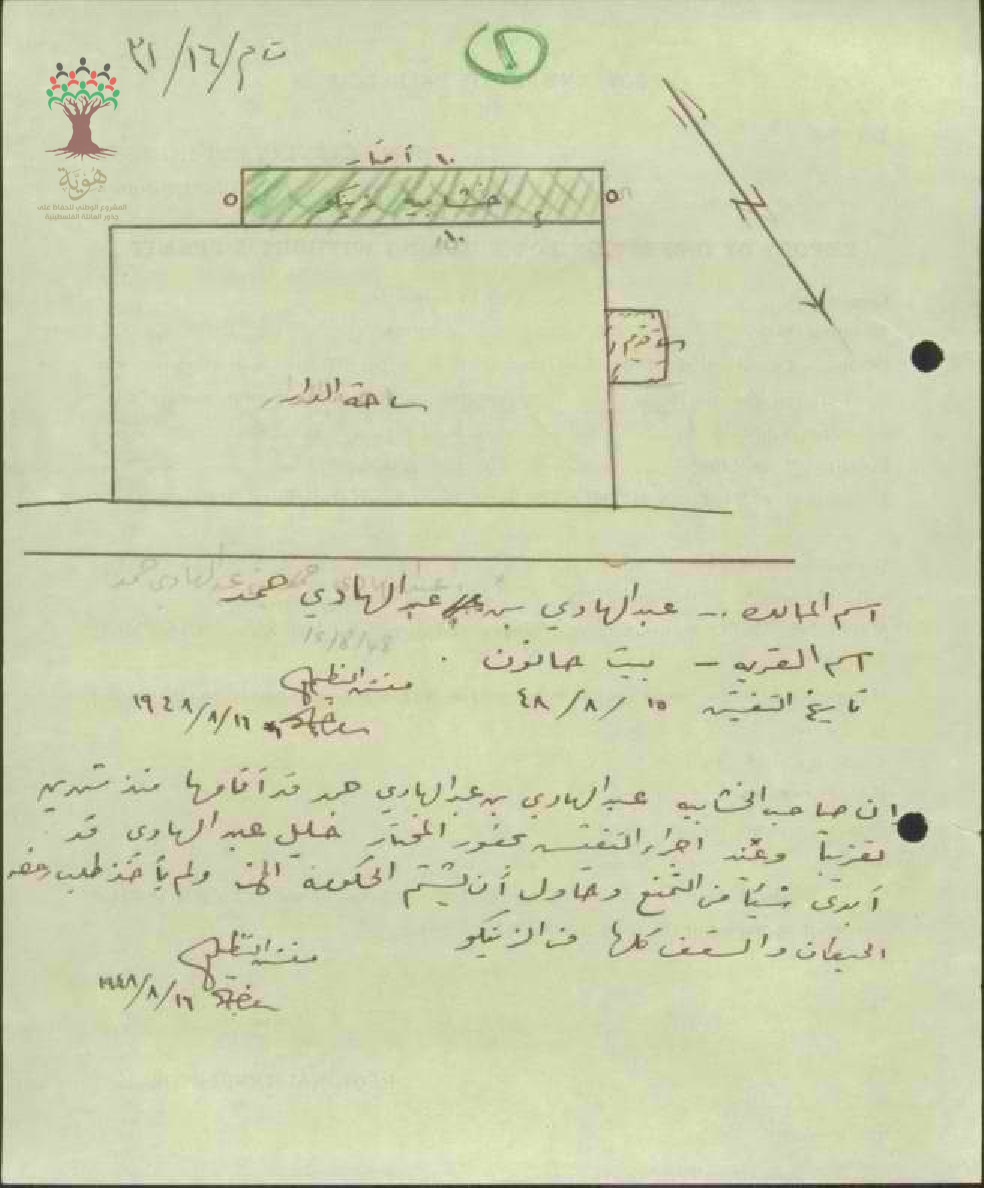 ت م/١٦/٣١
١
هوية
المشروع الوطني للحفاظ على
جذور العائلة الفلسطينية
١٠ أمتار
٥
خشابيه زينكو
٥
١٠
ساحة الدار
اسم المالك :- عبد الهادي بن عبد الهادي حمد
١٥/٨/٤٨
اسم القريه - بيت حانون
مفتش التنظيم
تاريخ التفتيش ١٥ / ٨ / ٤٨
١٩٤٨/٨/١٦
ان صاحب الخشابيه عبد الهادي بن عبد الهادي حمد قد أقامها منذ شهرين
تقريباً وعند اجراء التفتيش بحضور المختار خليل عبد الهادي قد
أبدى شيئاً من التمنع وحاول أن يشتم الحكومه الخ ولم يأخذ طلب رخصه
الحيطان والسقف كلها من الزينكو
مفتش التنظيم
١٩٤٨/٨/١٦